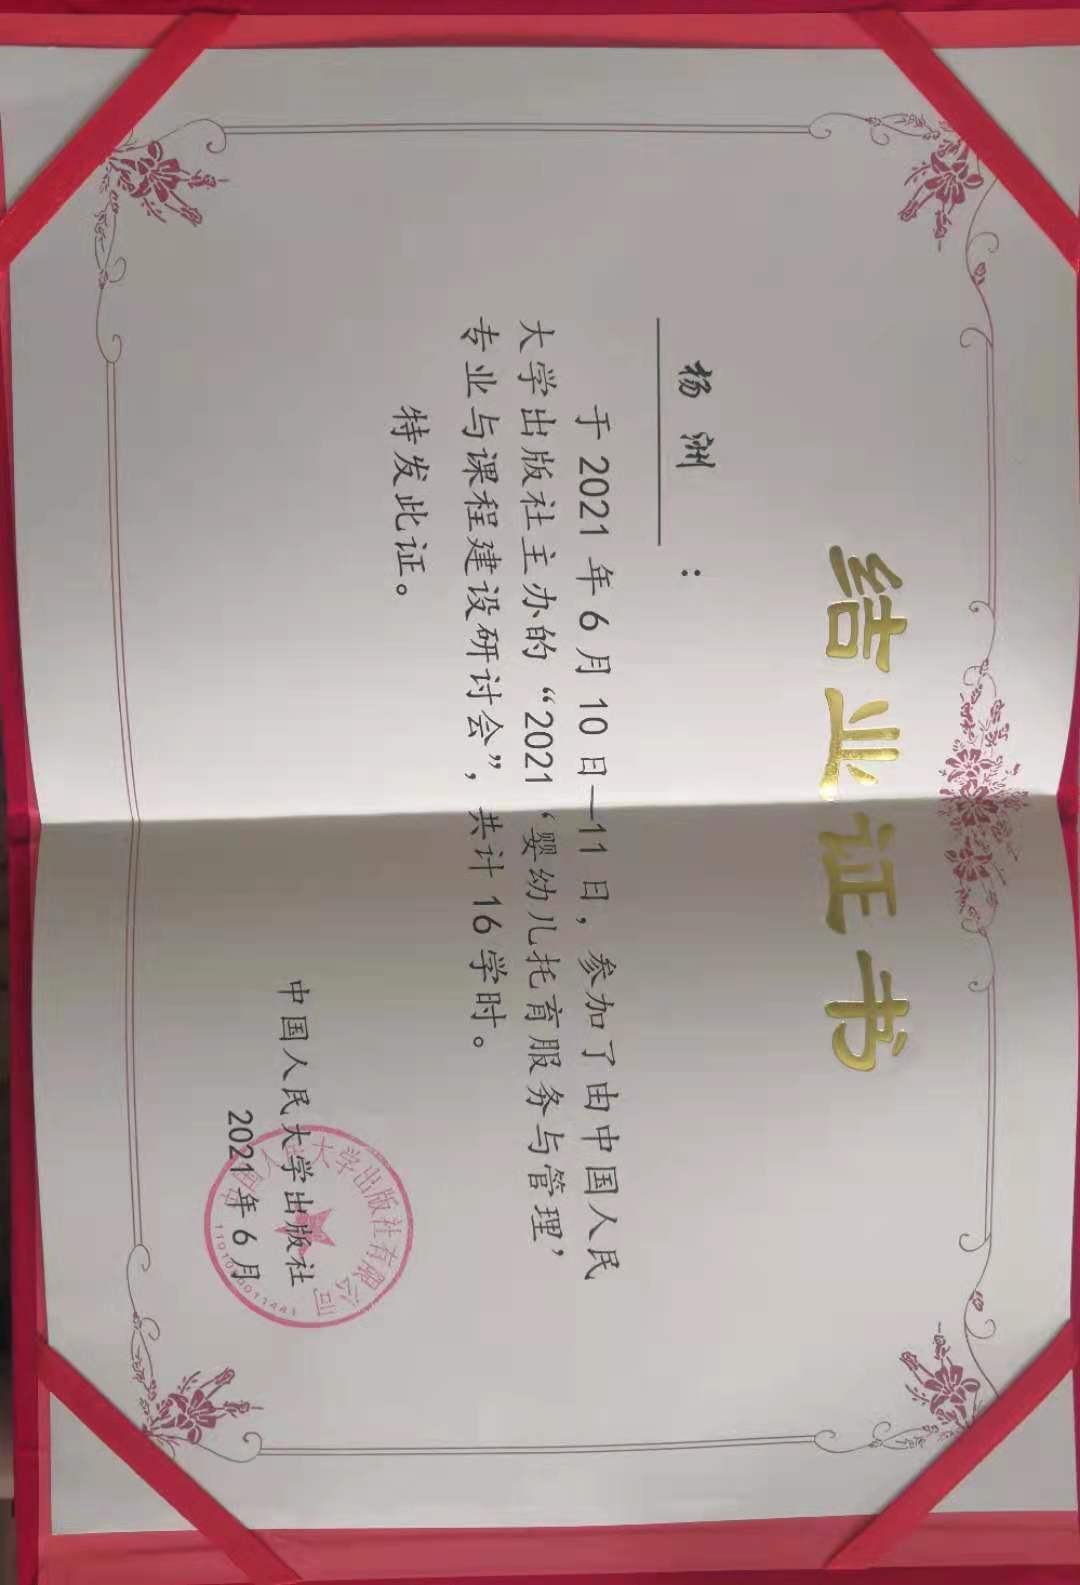 结业证书
杨洲：
于 2021 年 6 月 10 日—11 日，参加了由中国人民
大学出版社主办的“2021‘婴幼儿托育服务与管理’
专业与课程建设研讨会”，共计 16 学时。
特发此证。
中国人民大学出版社
2021 年 6 月
中国人民大学出版社有限公司